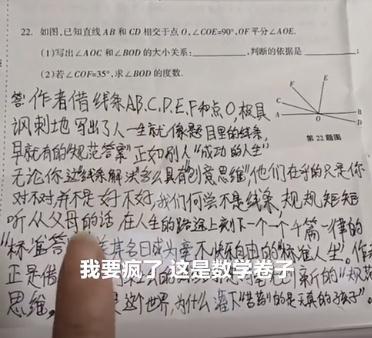 22. 如图,已知直线 AB 和 CD 相交于点 O,∠COE=90°,OF 平分∠AOE.
(1)写出∠AOC 和∠BOD 的大小关系: ,判断的依据是 ;
(2)若∠COF=35°,求∠BOD 的度数.
E
F
C
A
O
B
D
第 22 题图
答:作者借线条A.B.C.D.E.F和点O,极具
讽刺地写出了人一生就像题目里的线条,
早就有的"规范答案"正如别人"成功的人生"
无论你这线条解法多么具有创意思维,他们在乎的只是你
对不对并不是好不好,我们何尝不是线条,规规矩矩
听从父母的话,在人生的路途上刻下一个一个千篇一律的
"标准答 美其名曰成为 自由的"标准人生".作
正是借 新的"规
思维, 这个世界,为什么 的是天真的孩子".
我要疯了 这是数学卷子